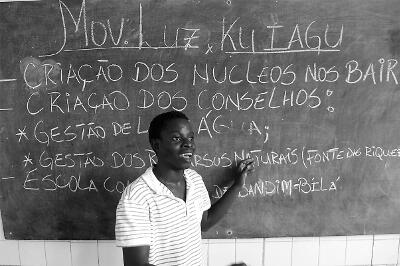 MOV. LUZ, KUTAGU
- CRIAÇÃO DOS NUCLEOS NOS BAIR
- CRIAÇÃO DOS CONSELHOS:
* GESTÃO DE L ÁGUA;
* GESTÃO DOS R URSOS NATURAIS (FONTE DAS RIQUE
- ESCOLA CO DE SANDIM-BILÁ